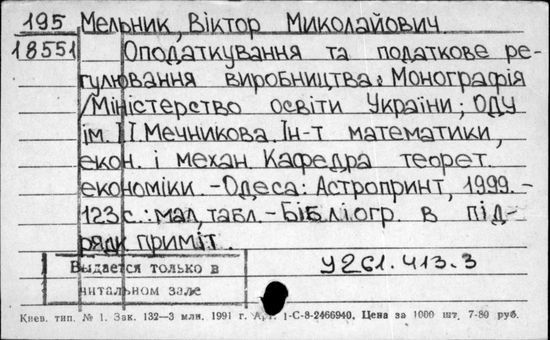 195 Мельник, Віктор Миколайович.
18551 Оподаткування та податкове ре-
гулювання виробництва: Монографія
/Міністерство освіти України; ОДУ
ім. І.І. Мечникова. Ін-т математики,
екон. і механ. Кафедра теорет.
економіки. - Одеса: Астропринт, 1999. -
123 с.: мал., табл. - Бібліогр. в під-
рядк. приміт.
Выдается только в
читальном зале
У261.413.3
Киев. тип. № 1. Зак. 132—3 млн. 1991 г. Арт. 1-С-8-2466940. Цена за 1000 шт. 7-80 руб.